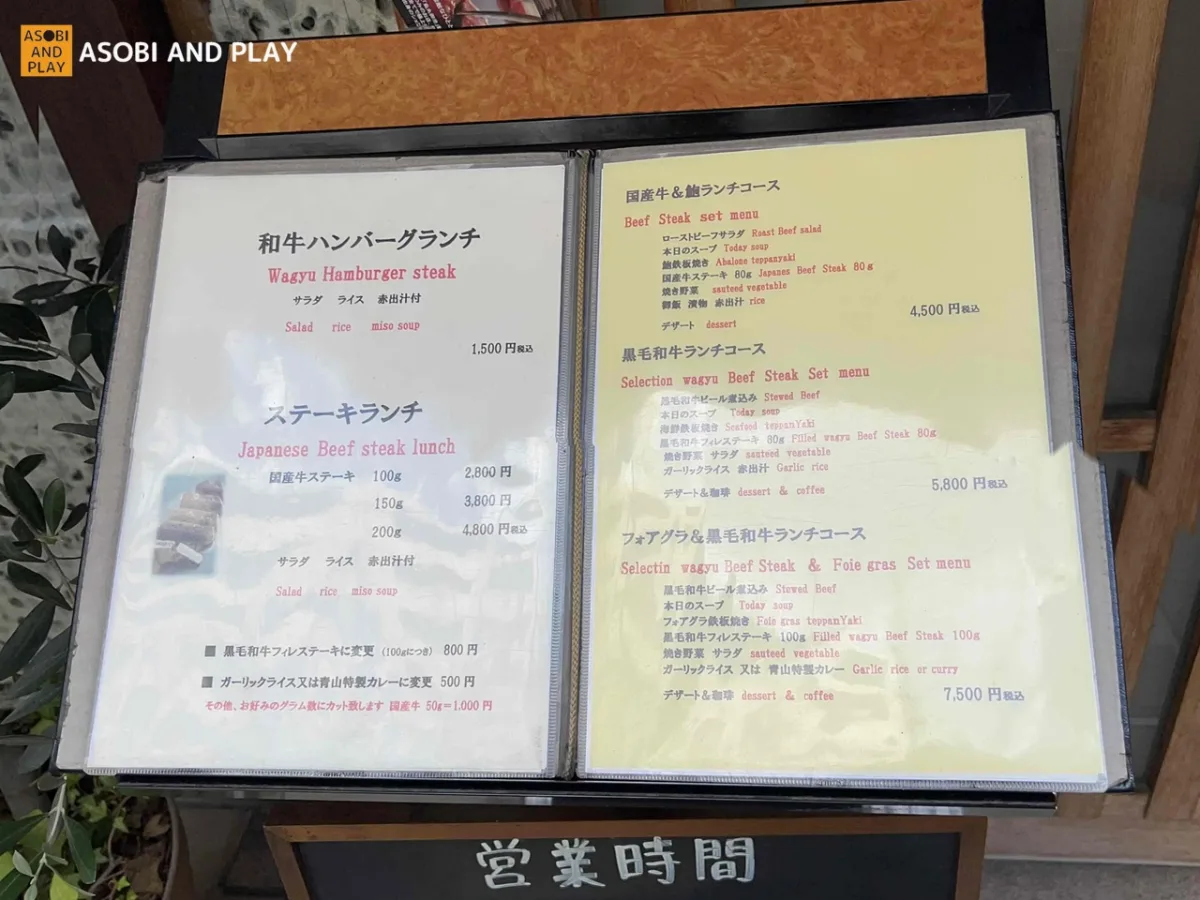 ASOBI
AND
PLAY
ASOBI AND PLAY
和牛ハンバーグランチ
Wagyu Hamburger steak
サラダ ライス 赤出汁付
Salad rice miso soup
1,500 円税込
ステーキランチ
Japanese Beef steak lunch
国産牛ステーキ 100g 2,800 円
150g 3,800 円
200g 4,800 円税込
サラダ ライス 赤出汁付
Salad rice miso soup
■ 黒毛和牛フィレステーキに変更 (100gにつき) 800 円
■ ガーリックライス又は青山特製カレーに変更 500 円
その他、お好みのグラム数にカット致します 国産牛 50g=1.000 円
国産牛&鮑ランチコース
Beef Steak set menu
ローストビーフサラダ Roast Beef salad
本日のスープ Today soup
鮑鉄板焼き Abalone teppanyaki
国産牛ステーキ 80g Japanes Beef Steak 80g
焼き野菜 sauteed vegetable
御飯 漬物 赤出汁 rice
デザート dessert
4,500 円税込
黒毛和牛ランチコース
Selection wagyu Beef Steak Set menu
黒毛和牛ビール煮込み Stewed Beef
本日のスープ Today soup
海鮮鉄板焼き Seafood teppanYaki
黒毛和牛フィレステーキ 80g Filled wagyu Beef Steak 80g
焼き野菜 サラダ sauteed vegetable
ガーリックライス 赤出汁 Garlic rice
デザート&珈琲 dessert & coffee
5,800 円税込
フォアグラ&黒毛和牛ランチコース
Selectin wagyu Beef Steak & Foie gras Set menu
黒毛和牛ビール煮込み Stewed Beef
本日のスープ Today soup
フォアグラ鉄板焼き Foie gras teppanYaki
黒毛和牛フィレステーキ 100g Filled wagyu Beef Steak 100g
焼き野菜 サラダ sauteed vegetable
ガーリックライス 又は 青山特製カレー Garlic rice or curry
デザート&珈琲 dessert & coffee 7,500 円税込
営業時間